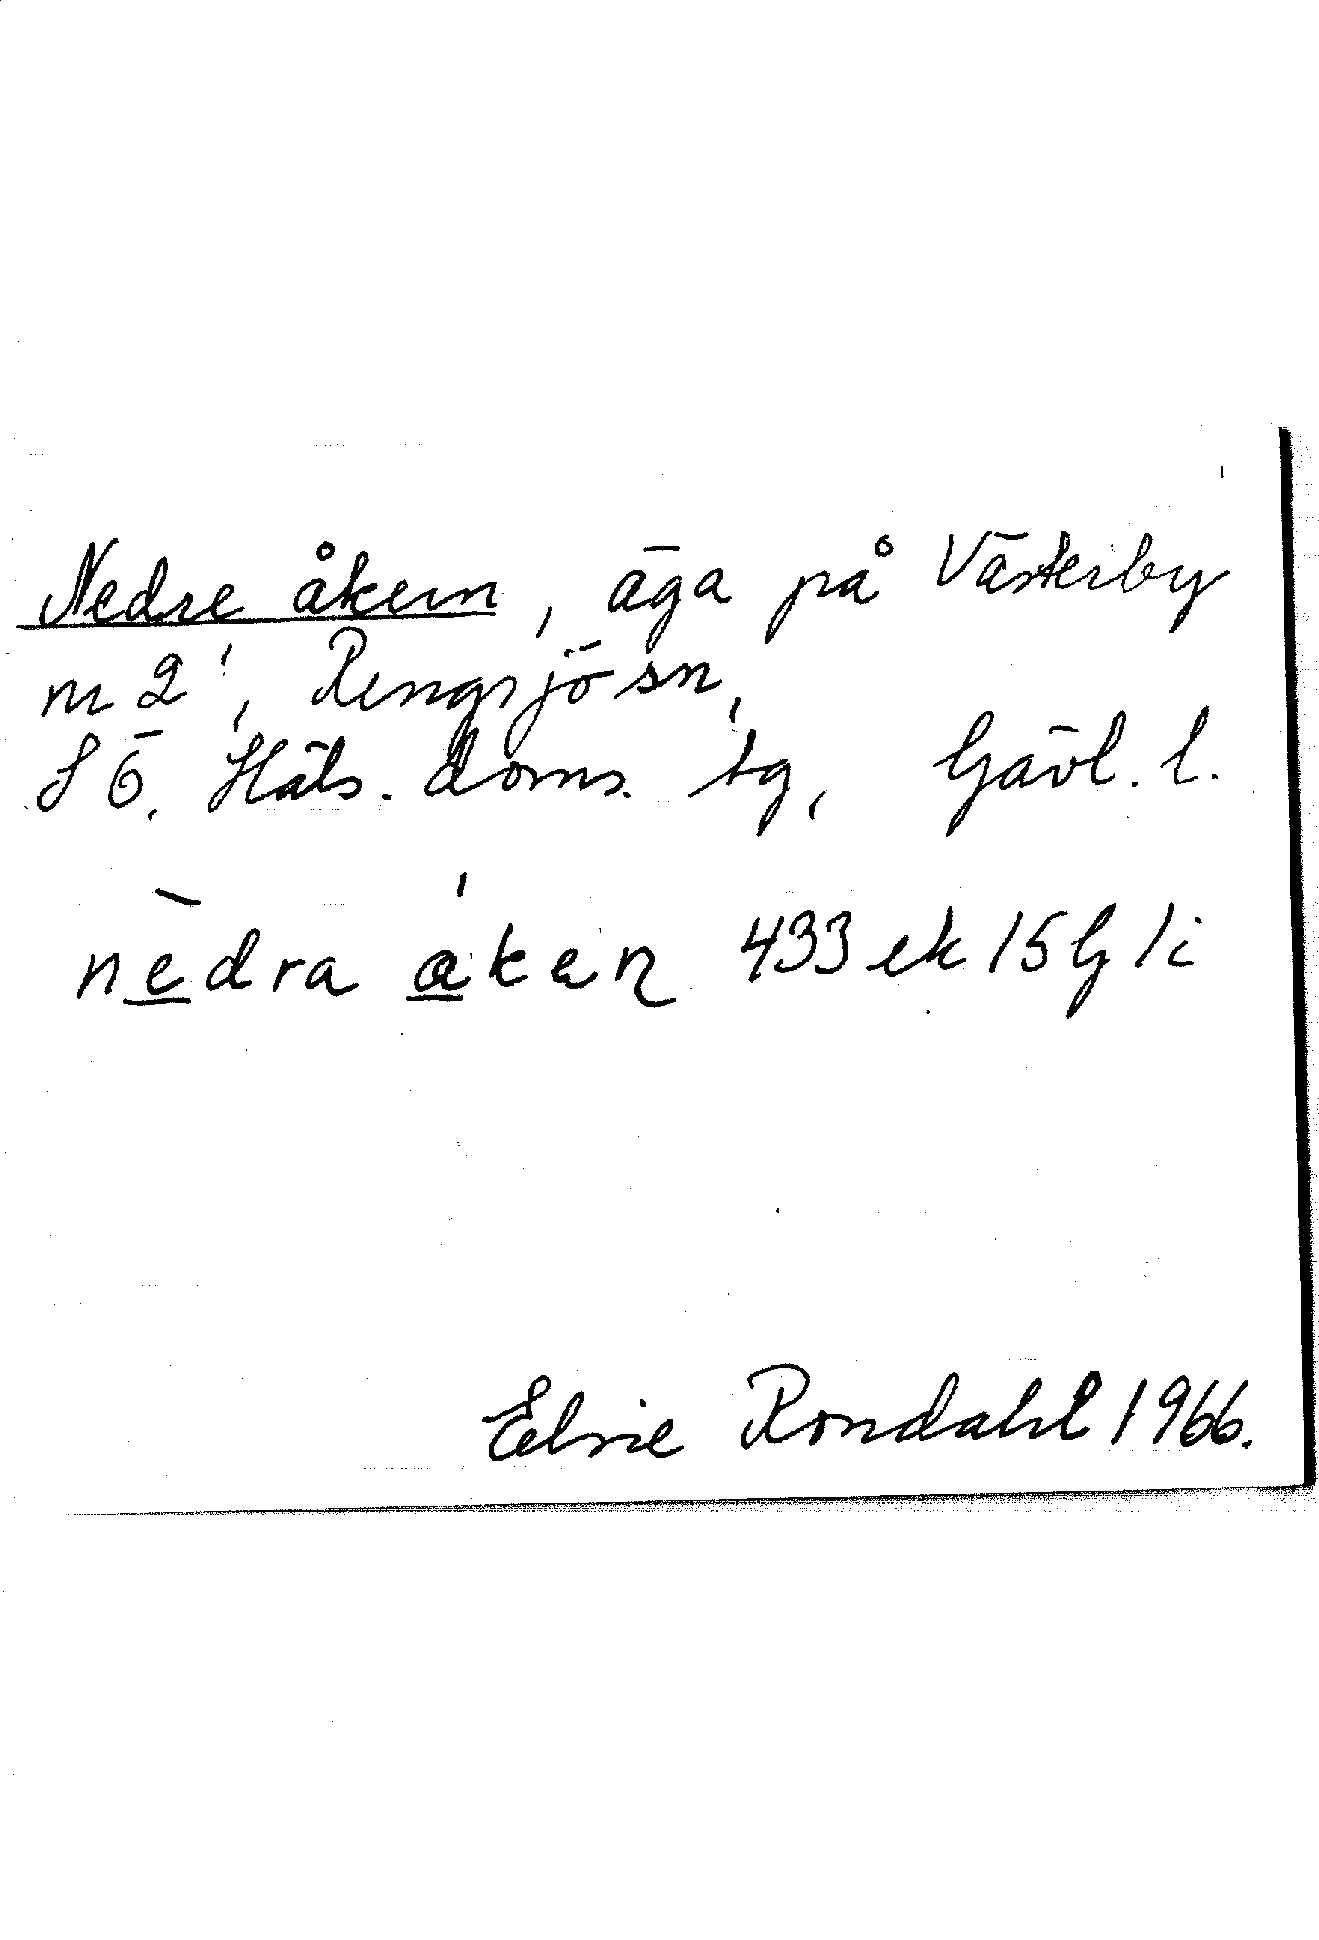 Nedre åkern, äga på Västerby
nr 2', Rengsjö sn,
SÖ. Häls. doms. tg, Gävl. l.
nèdra ákaɳ 433 ek 15 G 1 i
Elvie Rondahl 1966.